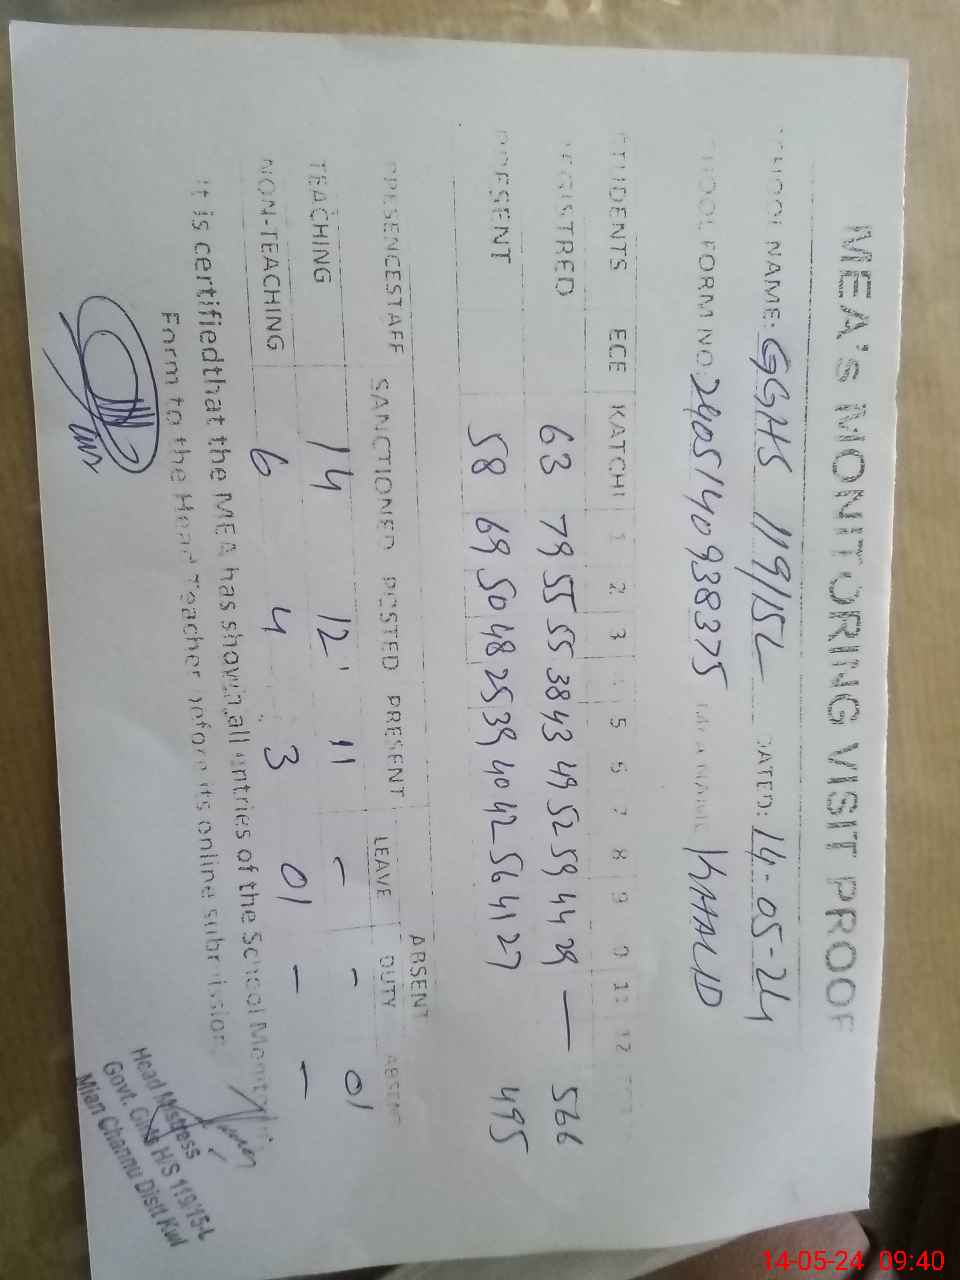 MEA'S MONITORING VISIT PROOF
SCHOOL NAME: GGHS 119/15L DATED: 14-05-24
SCHOOL FORM NO: 2405140938375 MEA NAME KHALID
STUDENTS ECE KATCHI 1 2 3 4 5 6 7 8 9 10 11 12
REGISTRED 63 79 55 55 38 43 49 52 59 44 29 — 566
PRESENT 58 69 50 48 25 39 40 42 56 41 27 495
ABSENT
PRESENCESTAFF SANCTIONED POSTED PRESENT LEAVE DUTY ABSENT
TEACHING 14 12 11 - - 01
NON-TEACHING 6 4 3 01 - -
It is certifiedthat the MEA has shown all entries of the School Monitoring
Form to the Head Teacher before its online submission
Head Mistress
Govt. Girls H/S 119/15-L
Mian Channu Distt Kwl
14-05-24 09:40